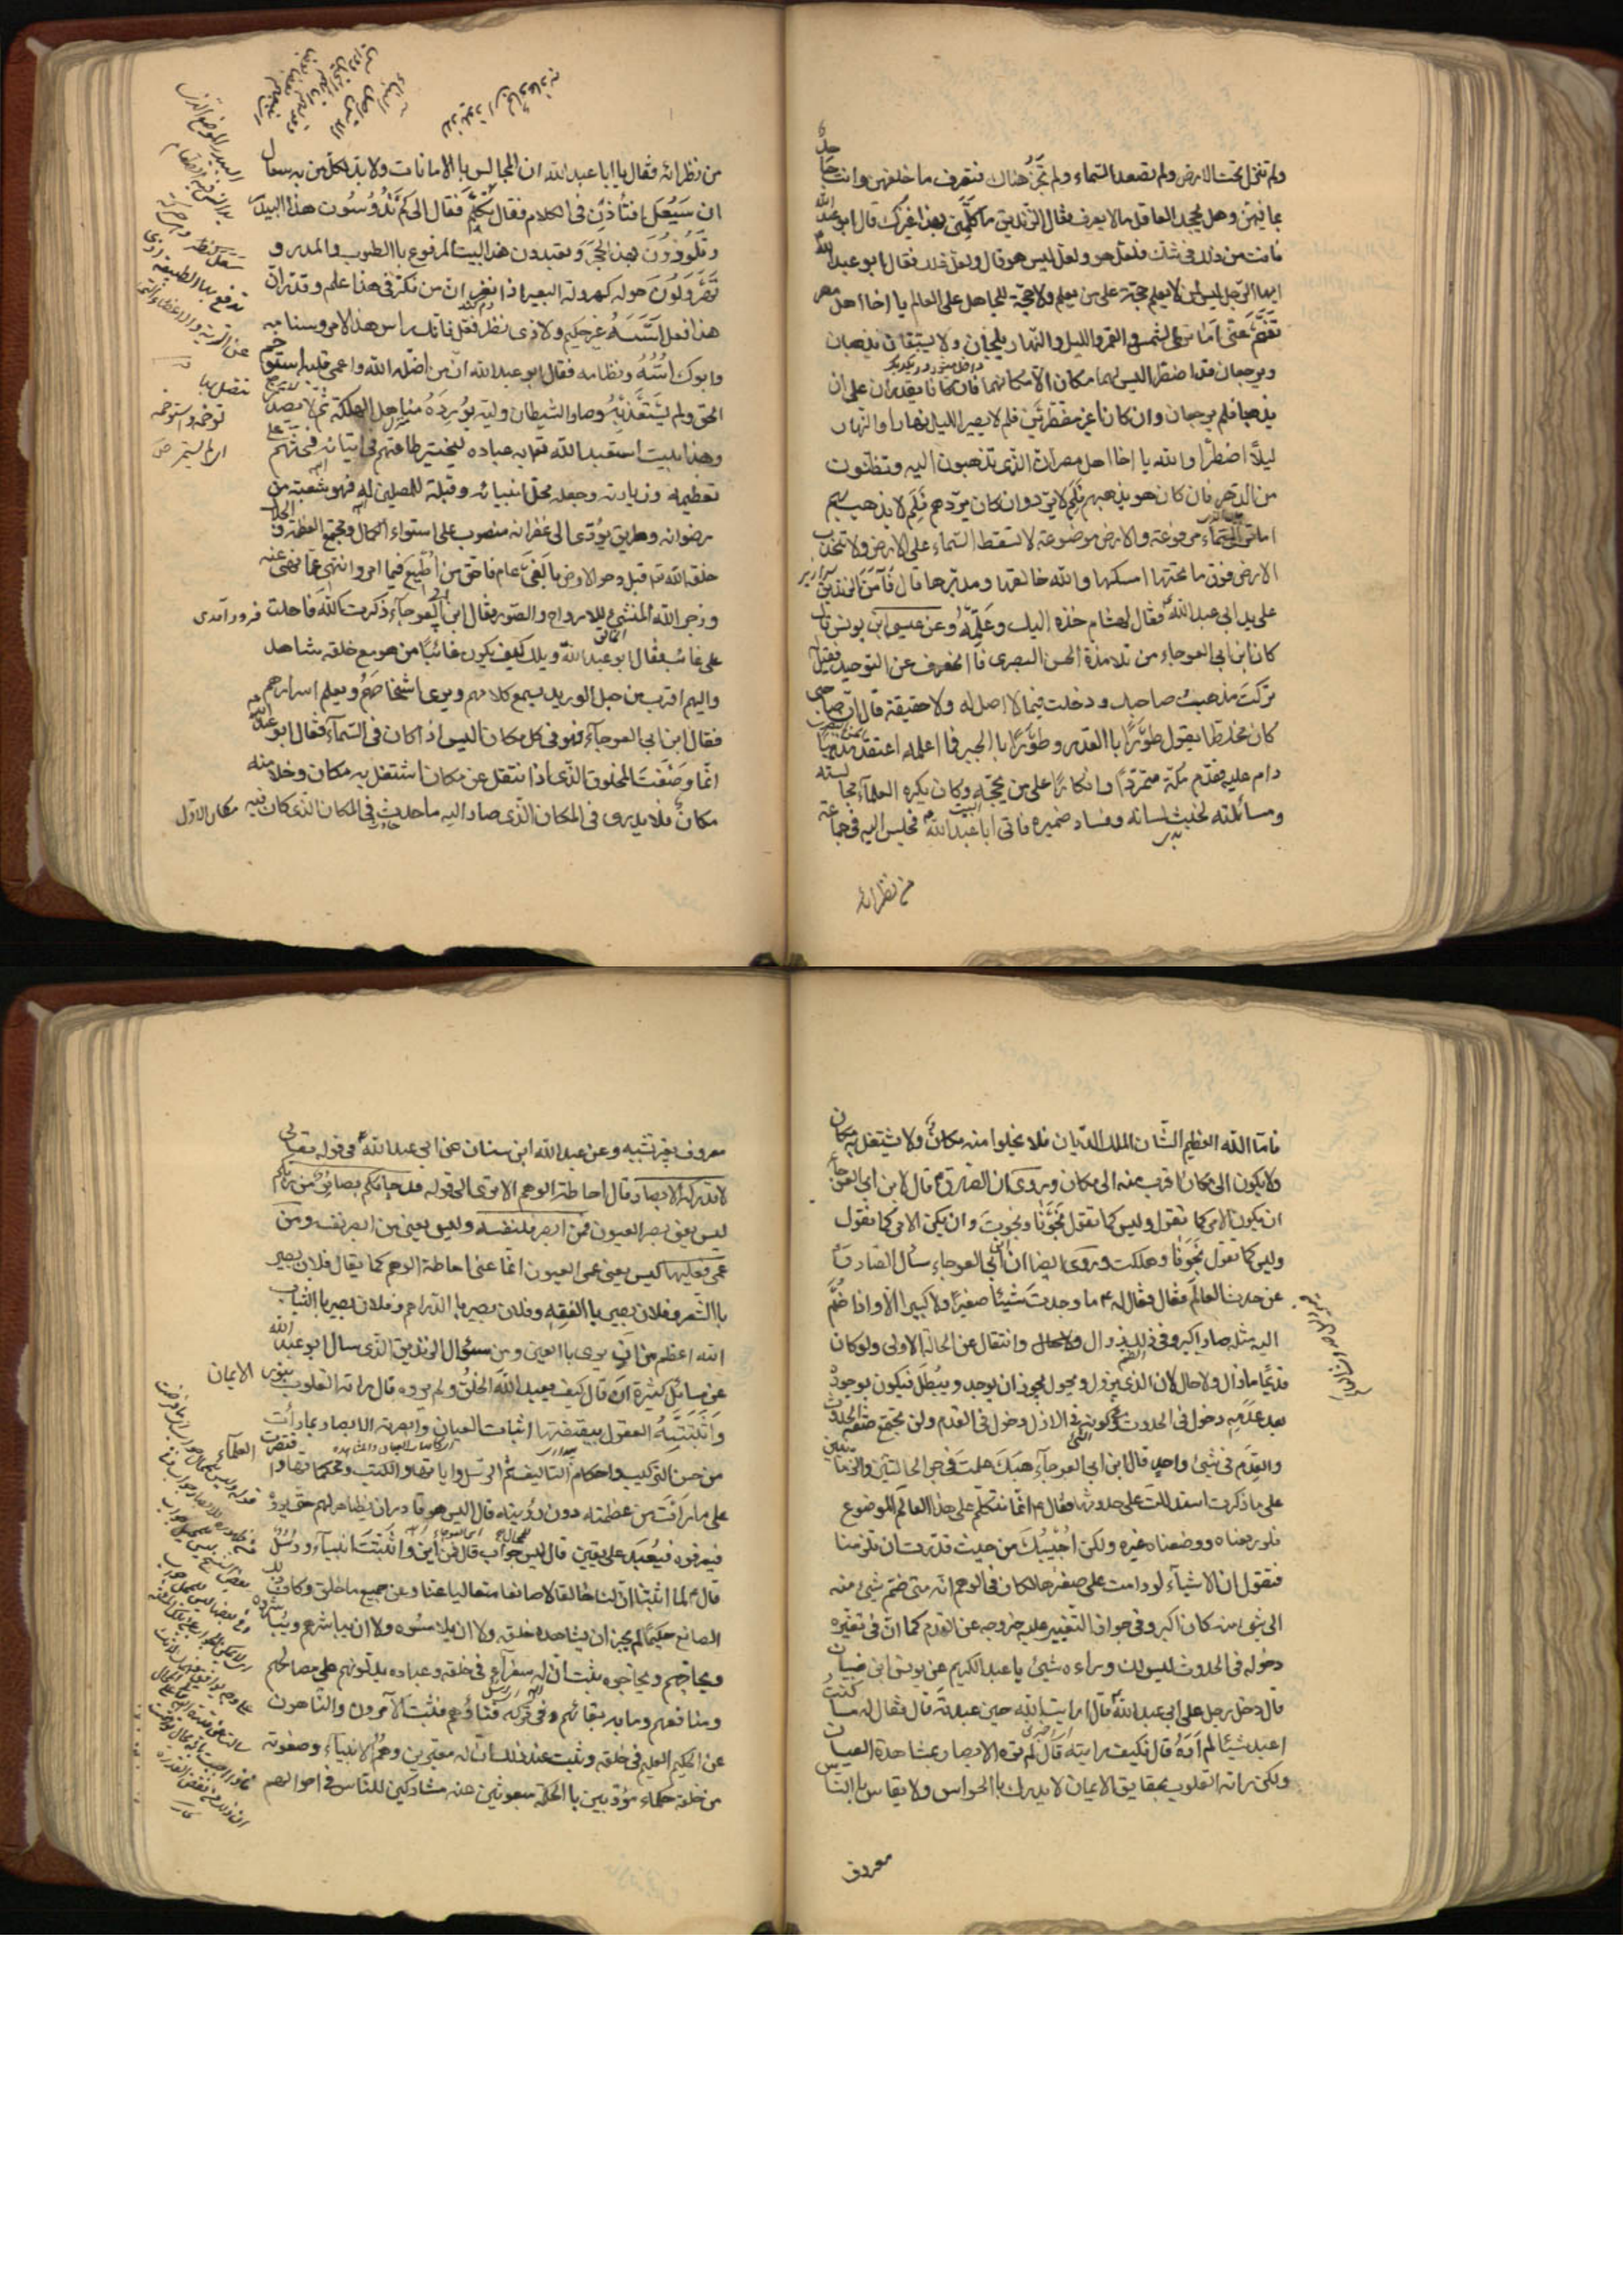 ولم تنزل تحت الارض ولم تصعد السماء ولم تجز هناك فتعرف ما خلفهن وانت جاحد
بما فيهن وهل يجحد العاقل ما لا يعرف فقال الزنديق ما كلمني بهذا غيرك قال ابو عبد الله
فانت من ذلك في شك فلعل هو ولعل ليس هو قال ولعل ذلك فقال ابو عبد الله
ايها الرجل ليس لمن لا يعلم حجة على من يعلم ولا حجة للجاهل على العالم يا اخا اهل مصر
تفهم عني اما ترى الشمس والقمر والليل والنهار يلجان ولا يستبقان يذهبان
ويرجعان قد اضطرا ليس لهما مكان الا مكانهما فان كانا يقدران على ان
يذهبا فلم يرجعان وان كانا غير مضطرين فلم لا يصير الليل نهارا والنهار
ليلا اضطرا والله يا اخا اهل مصر ان الذي تذهبون اليه وتظنون
من الدهر فان كان هو يذهبهم فلم لا يردهم وان كان يردهم فلم لا يذهب بهم
اما ترى السماء مرفوعة والارض موضوعة لا تسقط السماء على الارض ولا تنحدر
الارض فوق ما تحتها امسكها والله خالقها ومدبرها قال فآمن الزنديق
على يدي ابي عبد الله فقال لهشام خذه اليك وعلمه وعن عيسى ابن يونس قال
كان ابن ابي العوجاء من تلامذة الحسن البصري فانحرف عن التوحيد فقيل له
تركت مذهب صاحبك ودخلت فيما لا اصل له ولا حقيقة قال ان صاحبي
كان مخلطا يقول طورا با القدر وطورا با الجبر فما اعلمه اعتقد مذهبا
دام عليه فقدم مكة متمردا وانكارا على من يحجه وكان يكره العلماء مجالسته
ومسائلته لخبث لسانه وفساد ضميره فاتى ابا عبد الله فجلس اليه في جماعة
من نظرائه
من نظرائه فقال يا ابا عبد الله ان المجالس با الامانات ولا بد لكل من به سعال
ان يسعل افتأذن في الكلام فقال تكلم فقال الى كم تدوسون هذا البيدر
وتلوذون بهذا الحجر وتعبدون هذا البيت المرفوع با الطوب والمدر و
تهرولون حوله كهرولة البعير اذا نفر ان من فكر في هذا علم وقدر ان
هذا فعل اسسه غير حكيم ولا ذي نظر فقل فانك راس هذا الامر وسنامه
وابوك اسه ونظامه فقال ابو عبد الله ان من اضله الله واعمى قلبه استوخم
الحق ولم يستعذبه وصار الشيطان وليه يورده مناهل الهلكة ثم لا يصدره
وهذا بيت استعبد الله تعالى به عباده ليختبر طاعتهم في اتيانه فحثهم على
تعظيمه وزيارته وجعله محل انبيائه وقبلة للمصلين له فهو شعبة من
رضوانه وطريق يؤدي الى غفرانه منصوب على استواء الكمال ومجتمع العظمة والجلال
خلقه الله قبل دحو الارض با لفي عام فاحق من اطيع فيما امر وانتهى عما نهى عنه
وزجر الله المنشئ للارواح والصور فقال ابن ابي العوجاء ذكرت الله فاحلت
على غائب فقال ابو عبد الله ويلك كيف يكون غائبا من هو مع خلقه شاهد
واليهم اقرب من حبل الوريد يسمع كلامهم ويرى اشخاصهم ويعلم اسرارهم
فقال ابن ابي العوجاء فهو في كل مكان اليس اذا كان في السماء فقال ابو عبد الله
انما وصفت المخلوق الذي اذا انتقل عن مكان اشتغل به مكان وخلا منه
مكان فلا يدري في المكان الذي صار اليه ما حدث في المكان الذي كان فيه
فاما الله العظيم الشان الملك الديان فلا يخلوا منه مكان ولا يشتغل به مكان
ولا يكون الى مكان اقرب منه الى مكان وروي ان الصادق قال لابن ابي العوجاء
ان يكون الامر كما تقول وليس كما تقول نجونا ونجوت وان يكن الامر كما نقول
وليس كما تقول نجونا وهلكت وروي ايضا ان ابن ابي العوجاء سأل الصادق
عن حدث العالم فقال فقال له ما وجدت شيئا صغيرا ولا كبيرا الا واذا ضم
اليه مثله صار اكبر وفي ذلك زوال وانتقال عن الحالة الاولى ولو كان
قديما ما زال ولا حال لان الذي يزول ويحول يجوز ان يوجد ويبطل فيكون بوجوده
بعد عدمه دخول في الحدوث وفي كونه في الازل دخول في القدم ولن تجتمع صفة الحدوث
والقدم في شيء واحد قال ابن ابي العوجاء هبك علمت في جري الحالتين والزمانين
على ما ذكرت استدللت على حدوثها فقال انما نتكلم على هذا العالم الموضوع
فلو رفعناه ووضعناه غيره ولكن اجيبك من حيث قدرت ان تلزمنا
فتقول ان الاشياء لو دامت على صغرها لكان في الوهم انه متى ضم شيء منه
الى شيء منه كان اكبر وفي جواز التغيير عليه خروجه عن القدم كما ان في تغيره
دخوله في الحدوث ليس لك وراءه شيء يا عبد الكريم عن يونس ابن ظبيان
قال دخل رجل على ابي عبد الله قال ارايت الله حين عبدته قال فقال له ما كنت
اعبد شيئا لم اره قال فكيف رايته قال لم تره الابصار بمشاهدة العيان
ولكن راته القلوب بحقايق الايمان لا يدرك با الحواس ولا يقاس با الناس
معروف
معروف بغير تشبيه وعن عبد الله ابن سنان عن ابي عبد الله في قوله تعالى
لا تدركه الابصار قال احاطة الوهم الا ترى الى قوله قد جاءكم بصائر من ربكم
ليس يعني بصر العيون فمن ابصر فلنفسه وليس يعني من ابصر نفسه ومن
عمي فعليها ليس يعني عمى العيون انما عنى احاطة الوهم كما يقال فلان بصير
با الشعر وفلان بصير با الفقه وفلان بصير با الدراهم وفلان بصير با الثياب
الله اعظم من ان يرى با العين ومن سؤال الزنديق الذي سال ابو عبد الله
عن مسائل كثيرة ان قال كيف يعبد الله الخلق ولم يروه قال راته القلوب بنور الايمان
واثبتته العقول بيقظتها اثبات العيان وابصرته الابصار بما رأت
من حسن التركيب واحكام التاليف ثم الرسل واياتها والكتب ومحكماتها واقتصرت العلماء
على ما رات من عظمته دون رؤيته قال اليس هو قادر ان يظهر لهم حتى يروه
فيعرفوه فيعبد على يقين قال ليس للمحال جواب قال فمن اين اثبتت انبياء ورسل
قال انا لما اثبتنا ان لنا خالقا صانعا متعاليا عنا وعن جميع ما خلق وكان ذلك
الصانع حكيما لم يجز ان يشاهده خلقه ولا ان يلامسوه ولا ان يباشرهم ويباشروه
ويحاجهم ويحاجوه ثبت ان له سفراء في خلقه وعباده يدلونهم على مصالحهم
ومنافعهم وما به بقائهم وفي تركه فناؤهم فثبت الآمرون والناهون
عن الحكيم العليم في خلقه وثبت عند ذلك ان له معبرين وهم الانبياء وصفوته
من خلقه حكماء مؤدبين با الحكمة مبعوثين عنه مشاركين للناس في احوالهم